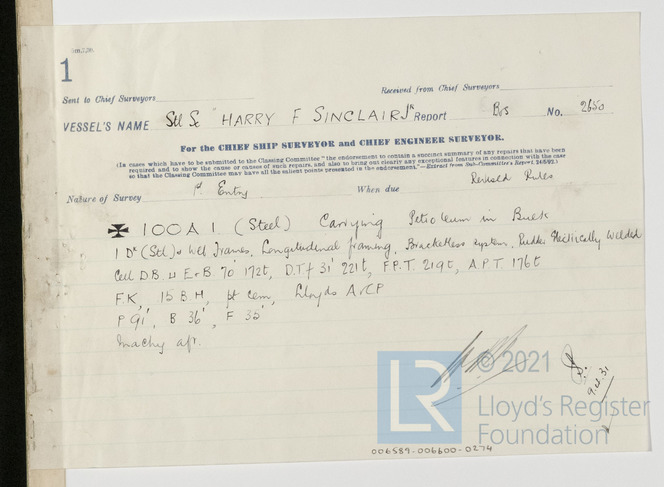 1
Sent to Chief Surveyors
Received from Chief Surveyors
VESSEL'S NAME Stl Sc "HARRY F SINCLAIR JR Report Bos No. 2650
For the CHIEF SHIP SURVEYOR and CHIEF ENGINEER SURVEYOR.
(In cases which have to be submitted to the Classing Committee "the endorsement to contain a succinct summary of any repairs that have been
required and to show the cause or causes of such repairs, and also to bring out clearly any exceptional features in connection with the case
so that the Classing Committee may have all the salient points presented in the endorsement."—Extract from Sub-Committee's Report
Nature of Survey Entry When due Revised Rules
✠ 100A1 (Steel) Carrying Petroleum in Bulk
1 Dk (Stl) & Web Frames, Longitudinal framing, Bracketless system, Rudder Electrically Welded
Cell D.B. u E&B. 70' 172t, D.T.f 31' 221t, F.P.T. 219t, A.P.T 176t
F.K, 15 B.H, pt cem, Lloyds A&CP
P 91', B 36', F 35'
Machy aft.
9.4.31
© 2021
LR
Lloyd's Register
Foundation
006589-006600-0274